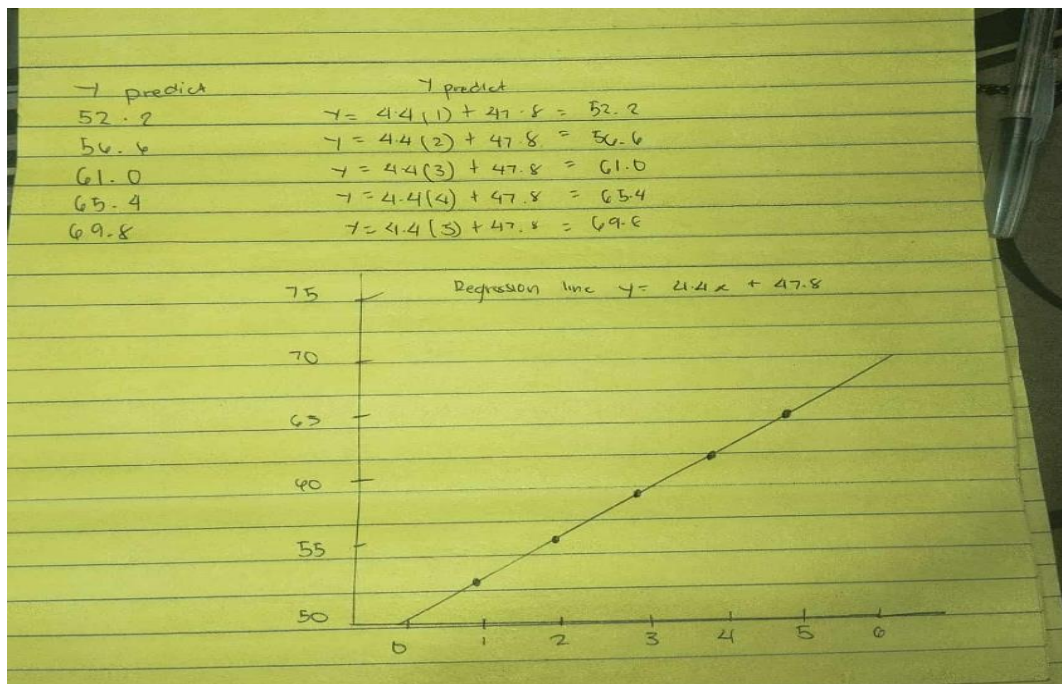 Y predict
52.2
56.6
61.0
65.4
69.8
Y predict
Y = 4.4(1) + 47.8 = 52.2
Y = 4.4(2) + 47.8 = 56.6
Y = 4.4(3) + 47.8 = 61.0
Y = 4.4(4) + 47.8 = 65.4
Y = 4.4(5) + 47.8 = 69.8
Regression line y = 4.4x + 47.8
75
70
65
60
55
50
0 1 2 3 4 5 6